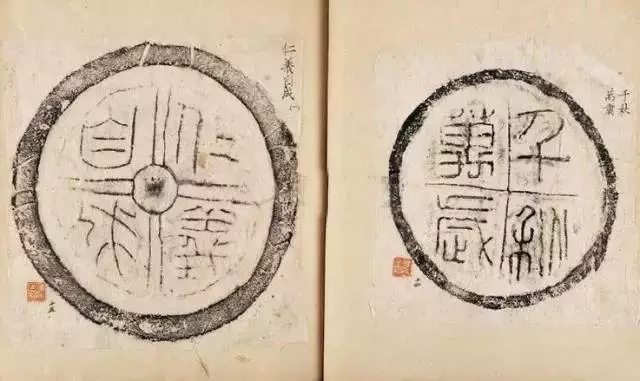 仁義自成
仁義
自成
千秋
萬歲
千秋
萬歲